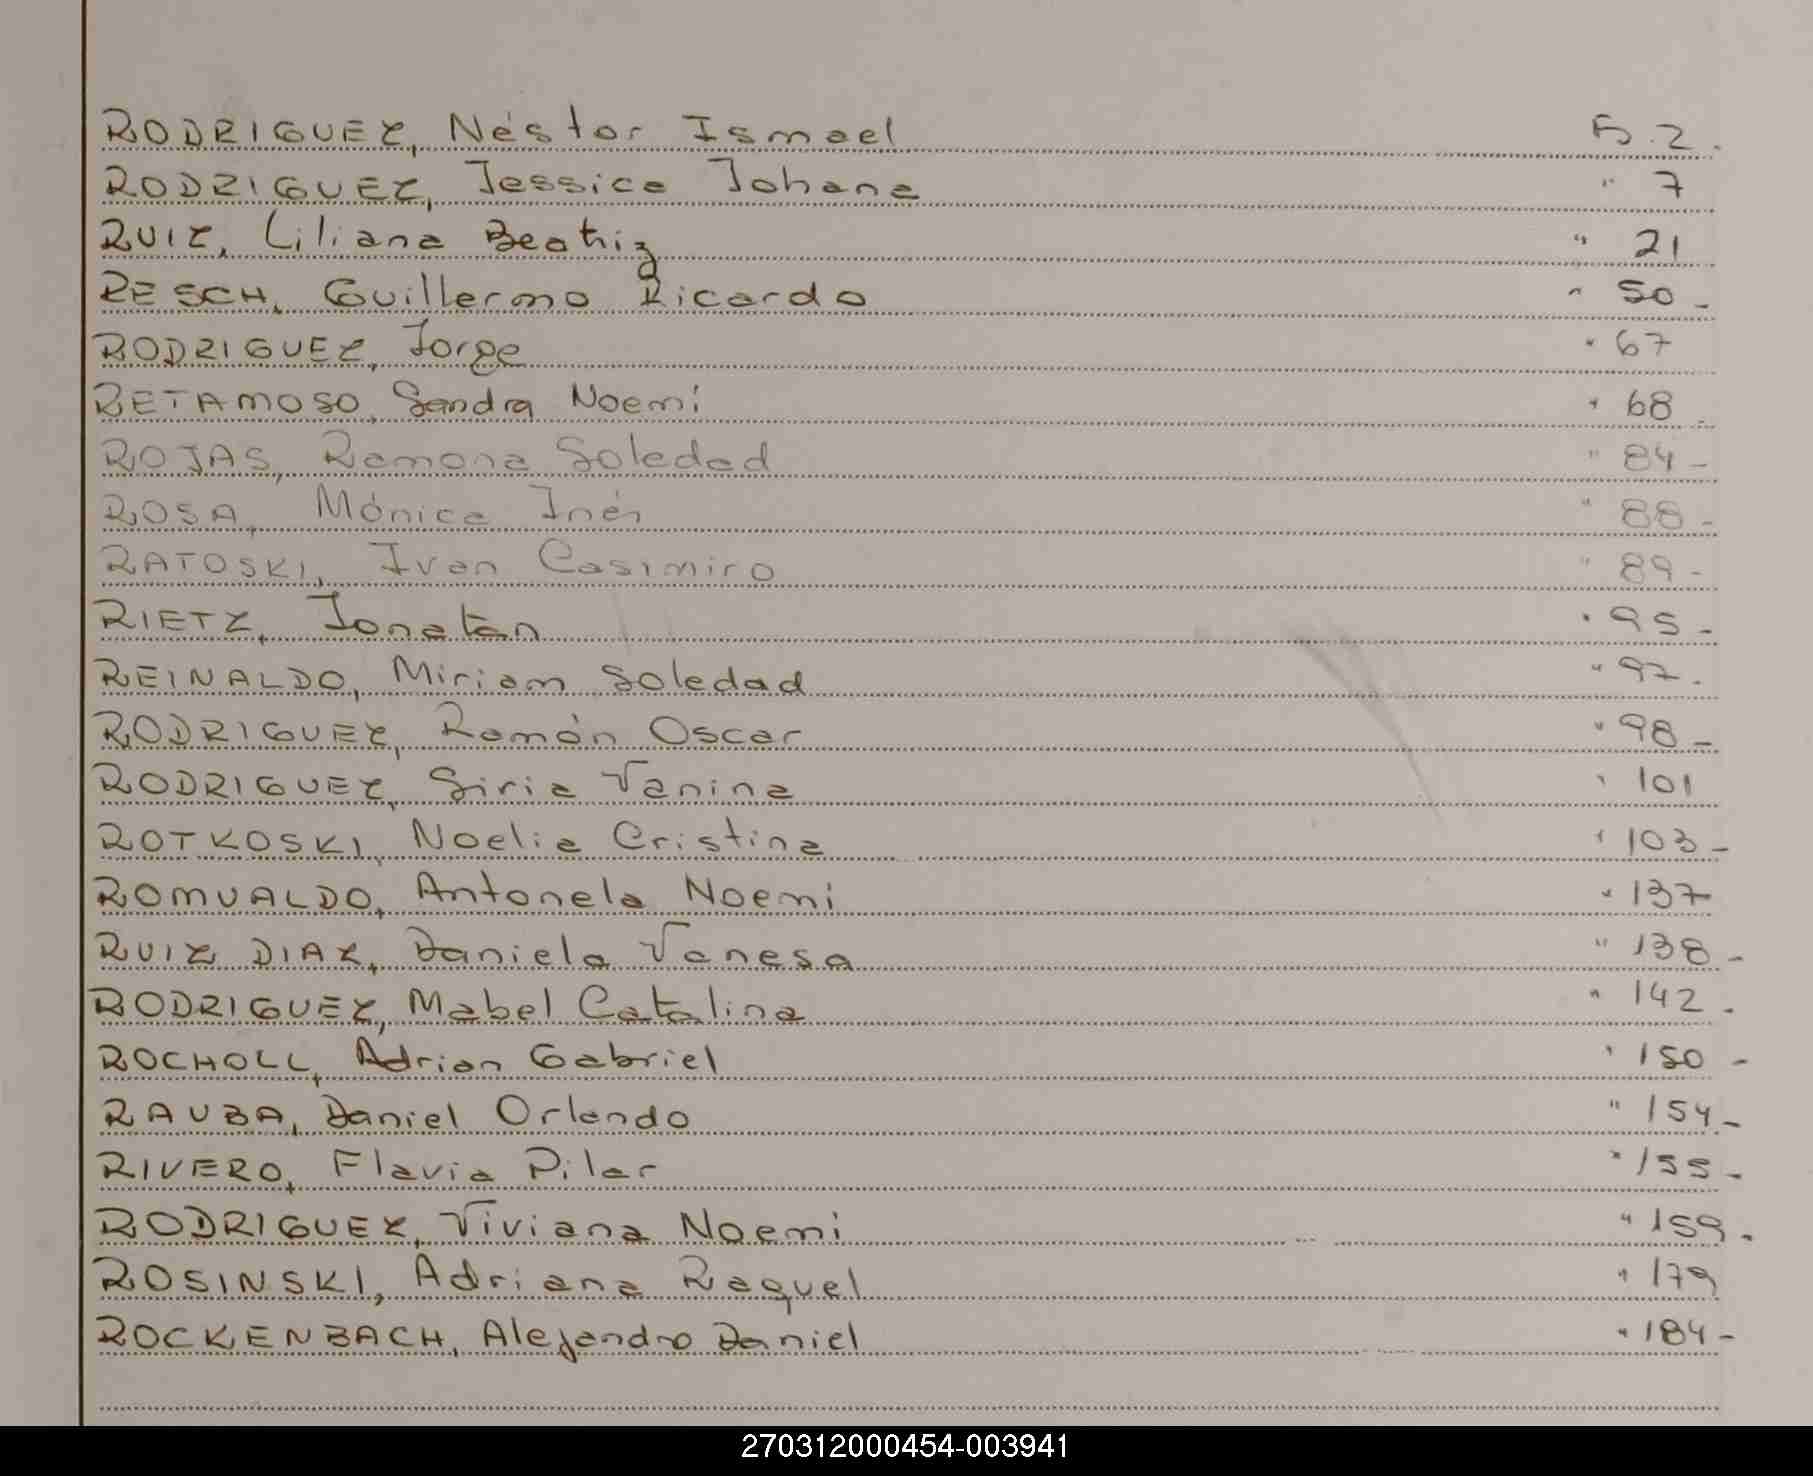 RODRIGUEZ, Néstor Ismael Fs. 2.
RODRIGUEZ, Jessica Johana " 7
RUIZ, Liliana Beatriz " 21
RESCH, Guillermo Ricardo " 50-
RODRIGUEZ, Jorge " 67
RETAMOSO, Sandra Noemi " 68
ROJAS, Ramona Soledad " 84-
ROSA, Mónica Inés " 88-
RATOSKI, Ivan Casimiro " 89-
RIETZ, Jonatan " 95-
REINALDO, Miriam Soledad " 97.
RODRIGUEZ, Ramón Oscar " 98-
RODRIGUEZ, Siria Vanina " 101
ROTKOSKI, Noelia Cristina " 103-
ROMUALDO, Antonela Noemi " 137
RUIZ DIAZ, Daniela Vanesa " 138-
RODRIGUEZ, Mabel Catalina " 142.
ROCHOLL, Adrian Gabriel " 150-
RAUBA, Daniel Orlando " 154-
RIVERO, Flavia Pilar " 155-
RODRIGUEZ, Viviana Noemi " 159.
ROSINSKI, Adriana Raquel " 179
ROCKENBACH, Alejandro Daniel " 184-
270312000454-003941